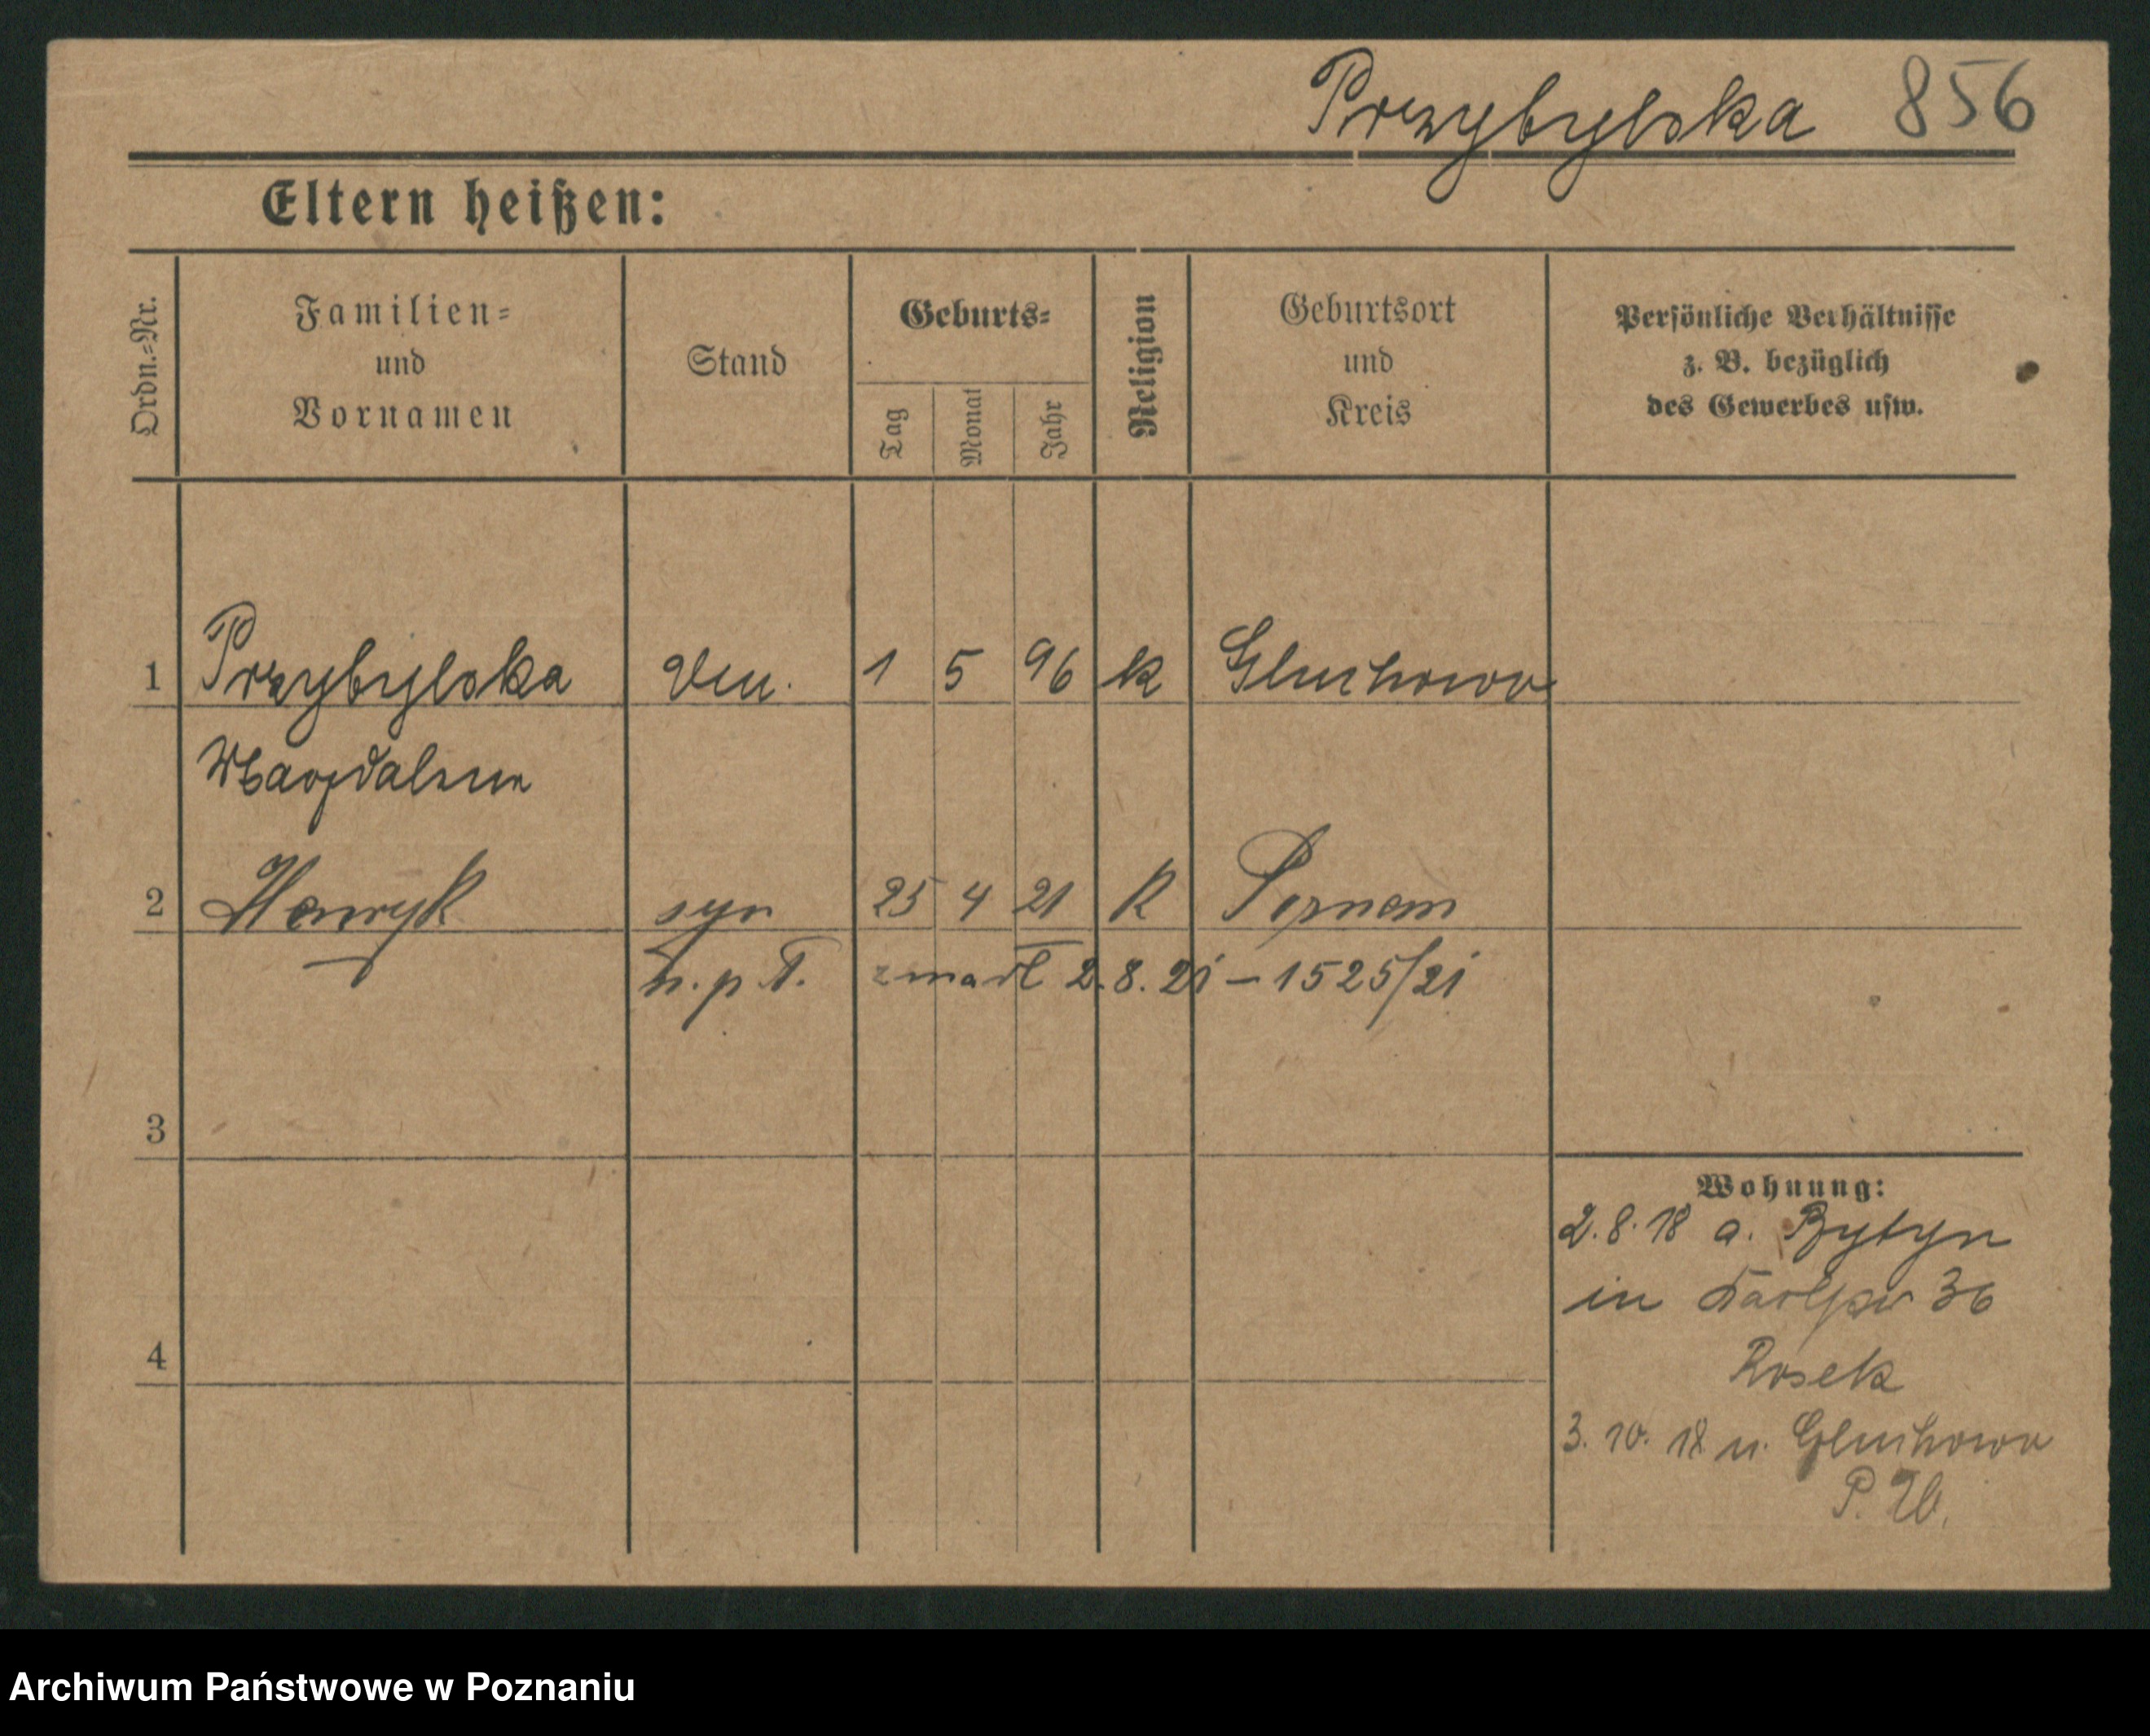 Przybylska 856
Eltern heißen:
Ordn.-Nr.
Familien-
und
Vornamen
Stand
Geburts-
Tag
Monat
Jahr
Religion
Geburtsort
und
Kreis
Persönliche Verhältnisse
z. B. bezüglich
des Gewerbes usw.
1 Przybylska 1 5 96 k Gluchowo
Magdalena
2 Henryk syn 25 4 21 k Poznań
zmarł 2.8.21 – 1525/21
3
4
Wohnung:
2.8.18 a. Bytyn
in 36
Rosek
3.10.18 n. Gluchowo
Archiwum Państwowe w Poznaniu